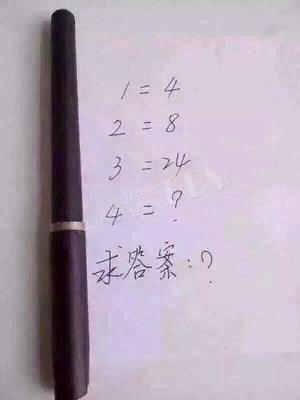 1 = 4
2 = 8
3 = 24
4 = ?
求答案:?